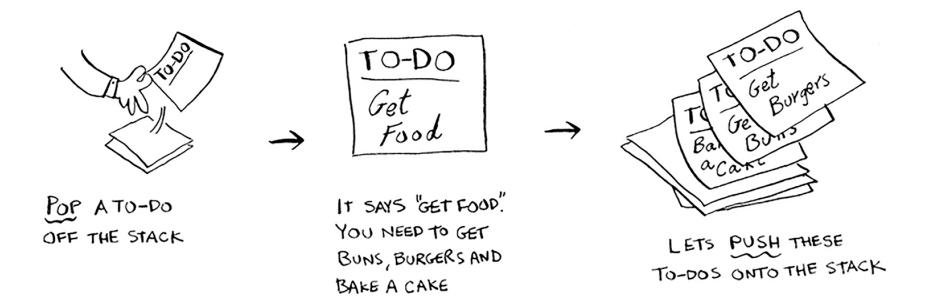 TO-DO
POP A TO-DO
OFF THE STACK
TO-DO
Get
Food
IT SAYS "GET FOOD".
YOU NEED TO GET
BUNS, BURGERS AND
BAKE A CAKE
TO-DO
Get
Burgers
Buns
a Cake
LETS PUSH THESE
TO-DOS ONTO THE STACK